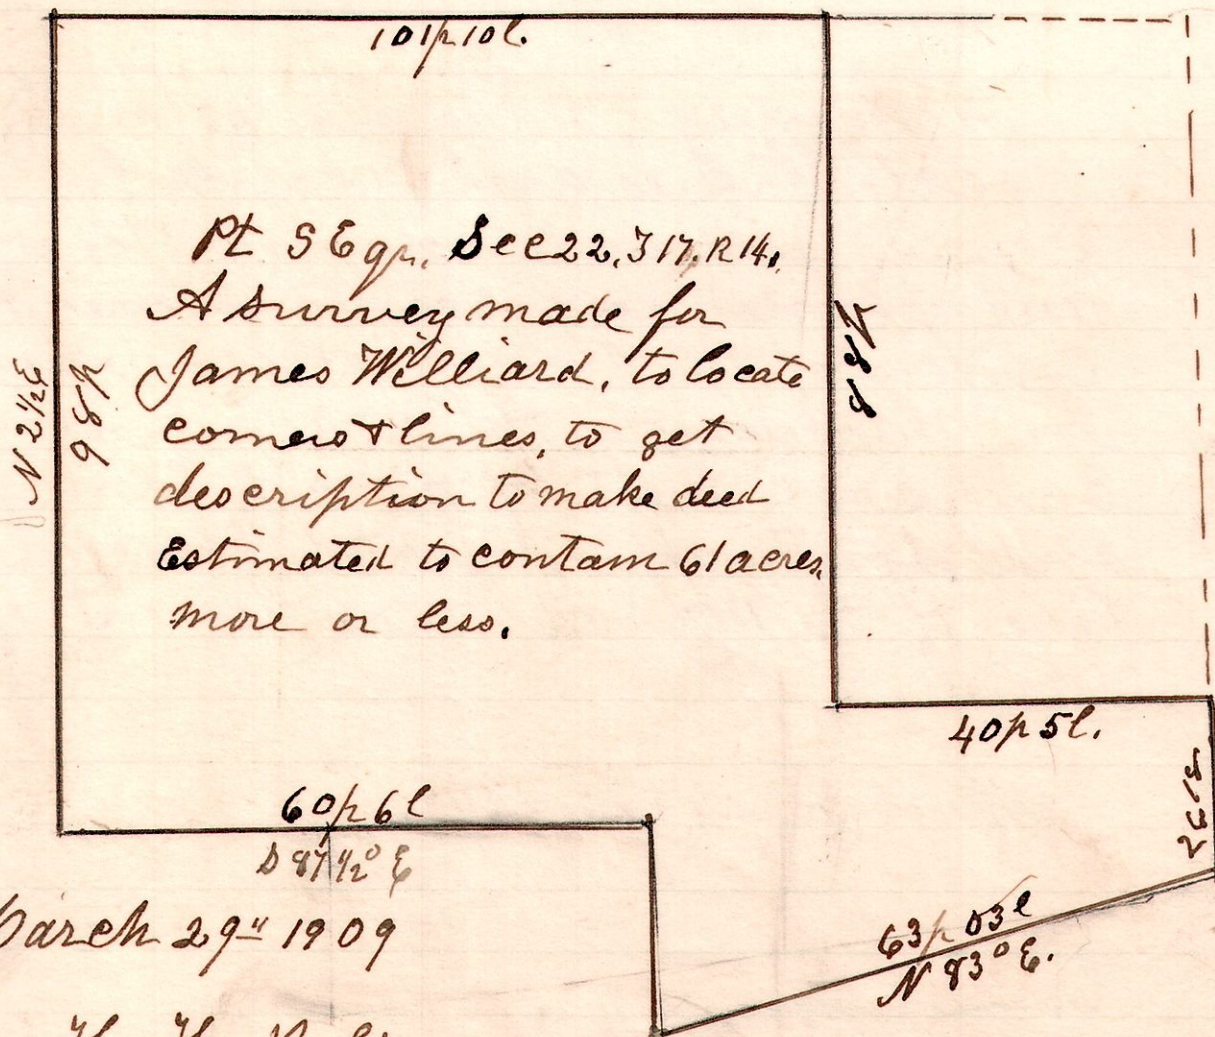 101p10l.
Pt SEqr. Sec22.T17.R14.
A survey made for
James Williard, to locate
corners & lines, to get
description to make deed
Estimated to contain 61 acres,
more or less.
N 2½E
98p
88p
40p5l.
60p6l
S 87½° E
63p 03l
N 83° E.
March 29" 1909